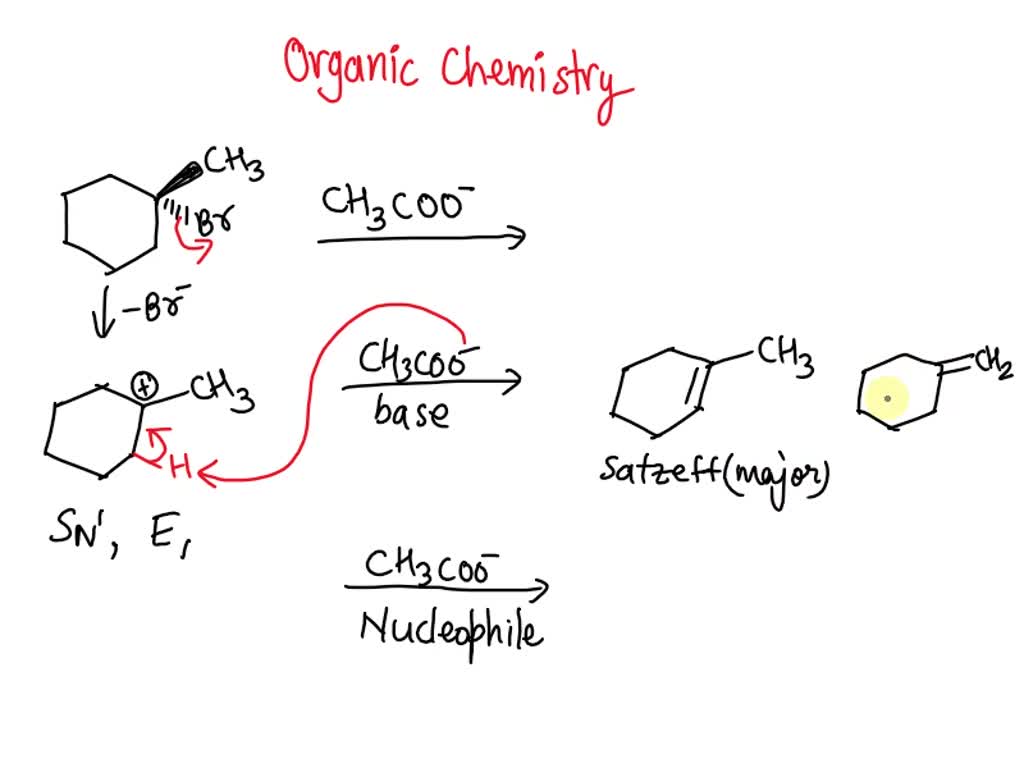 Organic Chemistry
CH3
Br
CH3COO⁻
-Br⁻
⊕ CH3
H
SN¹, E,
CH3COO⁻
base
CH3
=CH2
Satzeff (major)
CH3COO⁻
Nucleophile